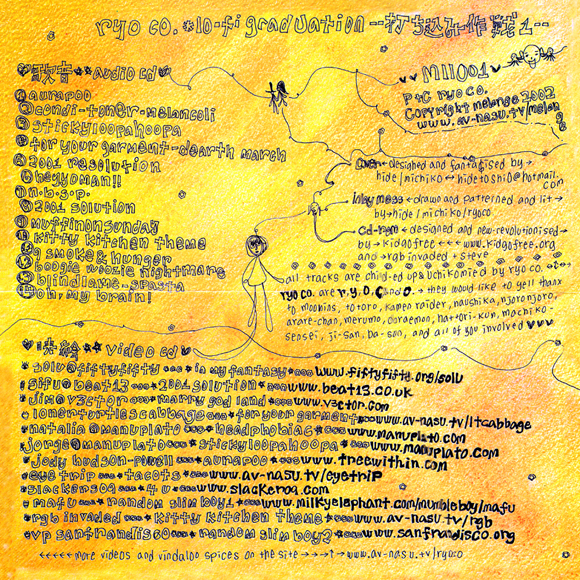 ryo co. *lo-fi graduation --打ち込み作戦1--
♥歌音**audio cd♥
aurapoo
condi-toner-melancoli
stickyloopahoopa
for your garment-dearth march
2001 resolution
heyyoman!!
n.b.g.p.
2001 solution
muffinonsunday
kitty kitchen theme
a smoke & hunger
boogie woozie nightmare
blindlove-spasta
oh, my brain!
♥♥ MII001 ♥
P+C ryo co.
Copyright melange 2002
www.av-nasu.tv/melan
g
Cover → designed and fantasised by →
hide/michiko ← hidetosh10@hotmail.
com
Inlay mess → drawn and patterned and lit →
by → hide/michiko/ryoco
Cd-rom → designed and new-revolutionised →
by → kidgofree <<< www.kidgofree.org
and → rgb invaded → steve
all tracks are chid-ed up & uchikomied by ryo co.
ryo co. are r, y, o, c, and o. → they would like to yell thanx
to moomins, totoro, kamen raider, naushika, njoronjoro,
arare-chan, merumo, doraemon, hattori-kun, machiko-
sensei, ji-san, ba-san, and all of you involved ♥♥♥
** video cd♥
solu@fiftyfifty in my fantasy www.fiftyfifty.org/solu
sifu@beat13 2001 solution www.beat13.co.uk
jim@v3ctor marry god land www.v3ctor.com
lonerturtlescabbage for your garment www.av-nasu.tv/ltcabbage
natalia@manuplato headphobia6 www.manuplato.com
jorge@manuplato stickyloopahoopa www.manuplato.com
jody hudson-powell aurapoo www.freewithin.com
eye trip tacots www.av-nasu.tv/eyetrip
slackeroa 4u www.slackeroa.com
mafu random slim boy1 www.milkyelephant.com/numbleboy/mafu
rgb invaded kitty kitchen theme www.av-nasu.tv/rgb
vp sanfrandisco random slim boy2 www.sanfrandisco.org
<<<<<more videos and vindaloo spices on the site →→→→www.av-nasu.tv/ryoco